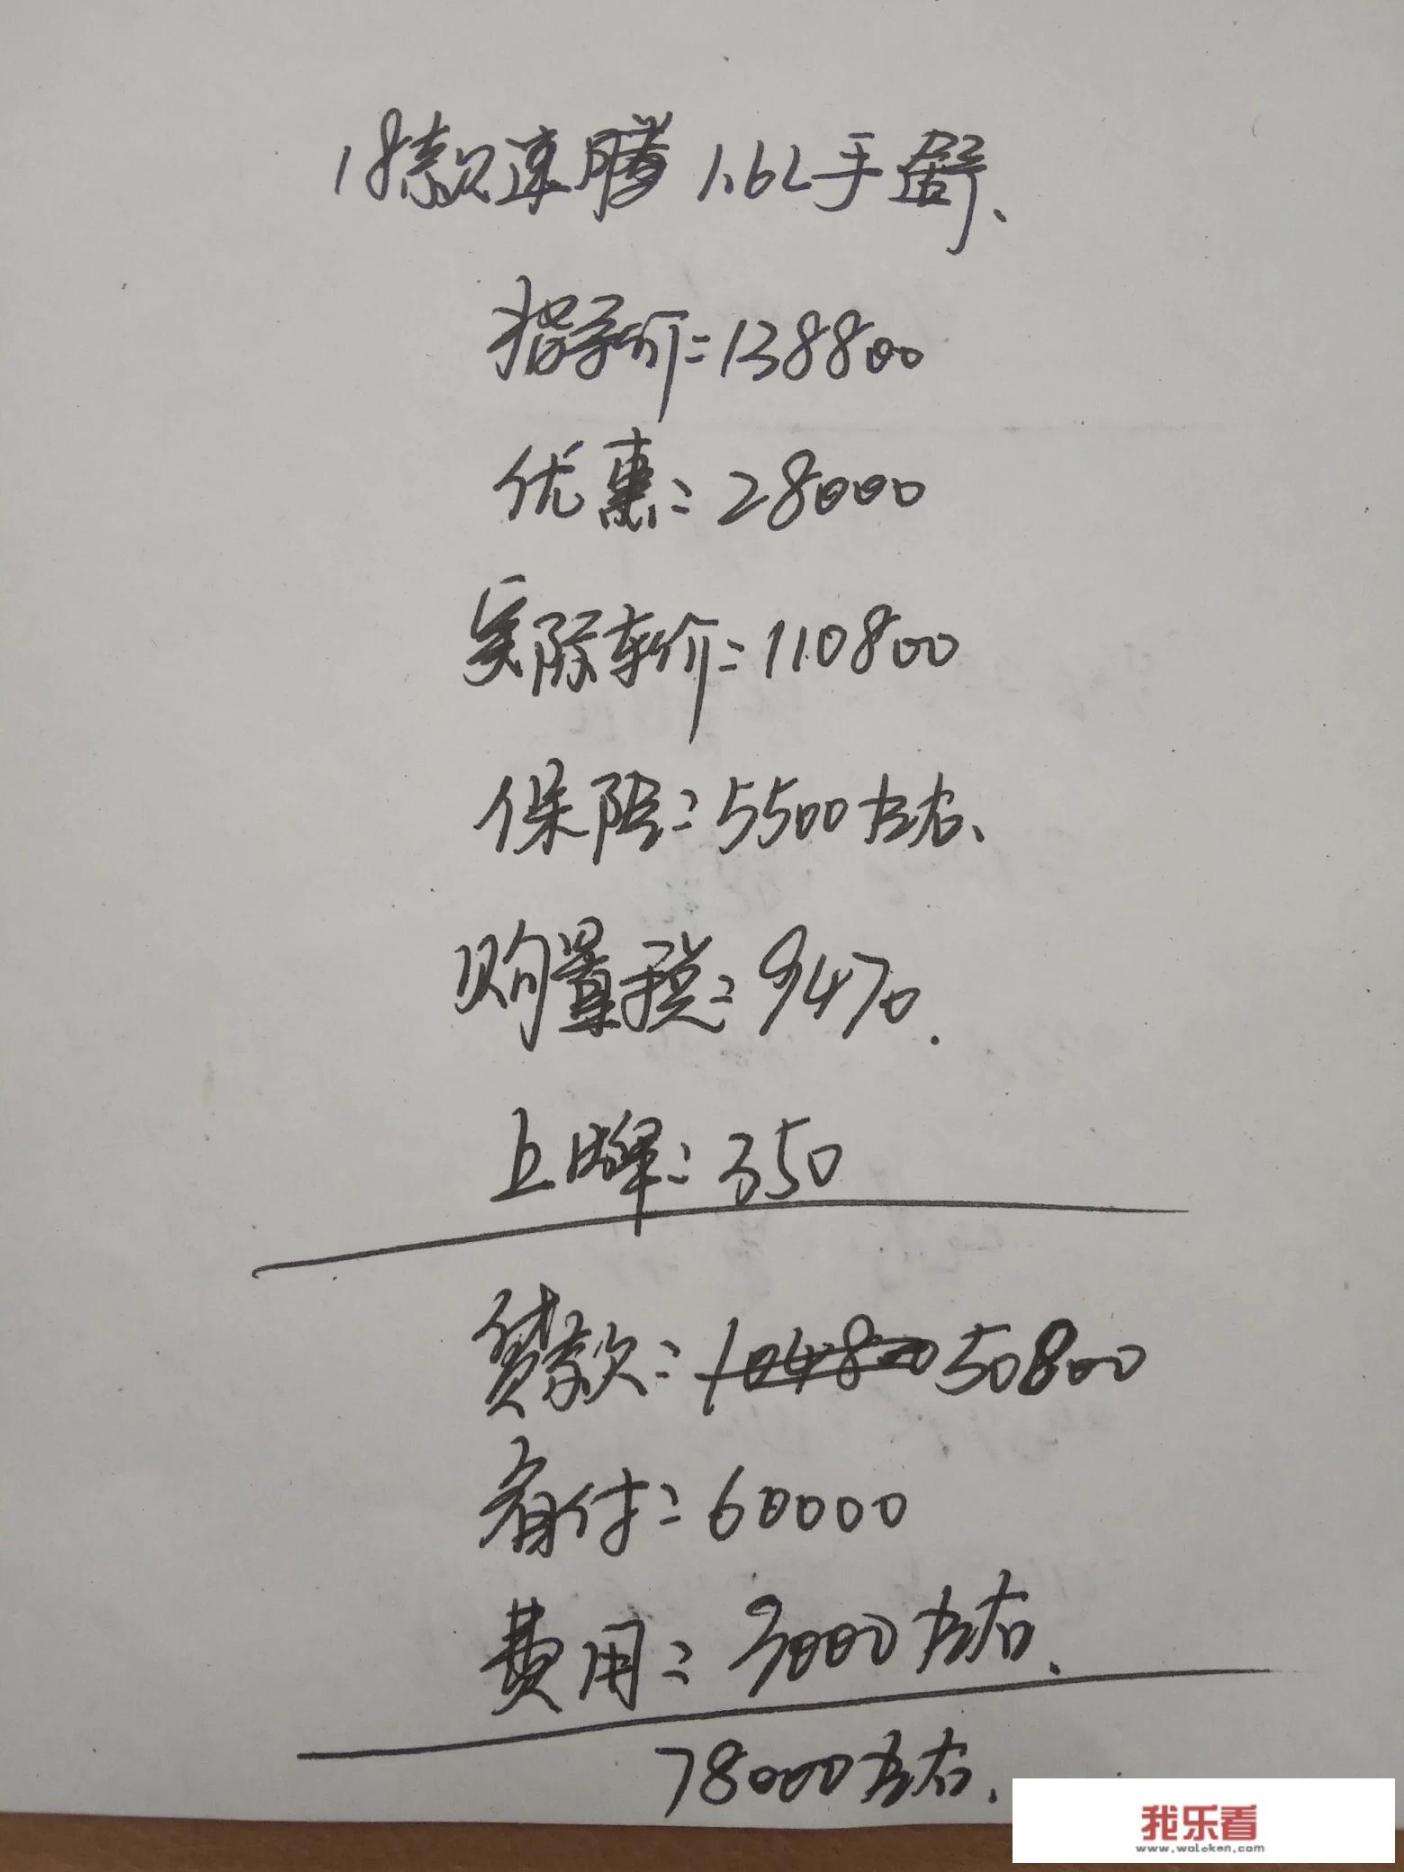 18款速腾 1.6L手舒、
指导价=138800
优惠=28000
实际车价=110800
保险=5500左右、
购置税=9470.
上牌=350
贷款=104800 50800
首付=60000
费用=3000左右、
78000左右、
我乐看
www.woleken.com